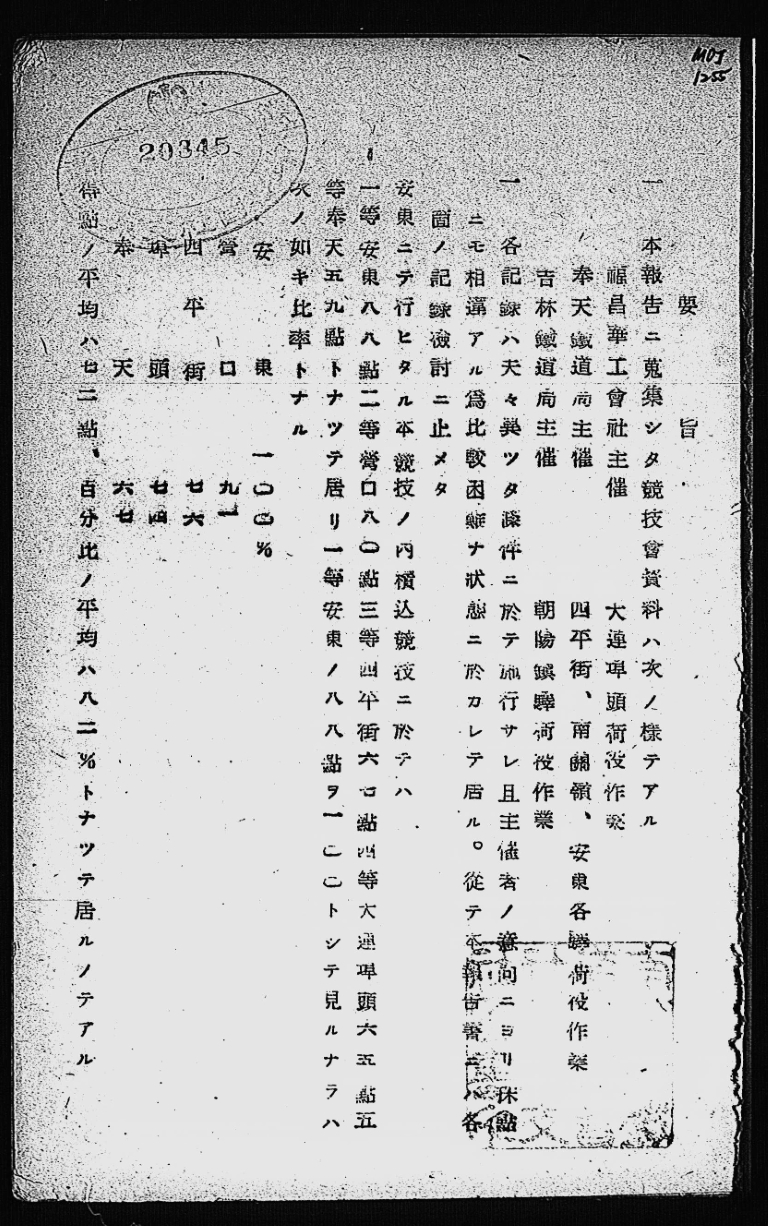 MOJ
1255
20345
要旨
一 本報告ニ蒐集シタ競技會資料ハ次ノ樣テアル
福昌華工會社主催 大連埠頭荷役作業
奉天鐵道局主催 四平街、南關嶺、安東各驛荷役作業
吉林鐵道局主催 朝陽鎮驛荷役作業
一 各記錄ハ夫々異ツタ條件ニ於テ施行サレ且主催者ノ意向ニヨリ採點
ニモ相違アル爲比較困難ナ狀態ニ於カレテ居ル。從テ本報告書ニハ各
箇ノ記錄檢討ニ止メタ
安東ニテ行ヒタル本競技ノ內積込競技ニ於テハ
一等安東八八點二等營口八〇點三等四平街六七點四等大連埠頭六五點五
等奉天五九點トナツテ居リ一等安東ノ八八點ヲ一〇〇トシテ見ルナラハ
次ノ如キ比率トナル
安東 一〇〇%
營口 九一
四平街 七六
埠頭 七四
奉天 六七
得點ノ平均ハ七二點、百分比ノ平均ハ八二%トナツテ居ルノテアル